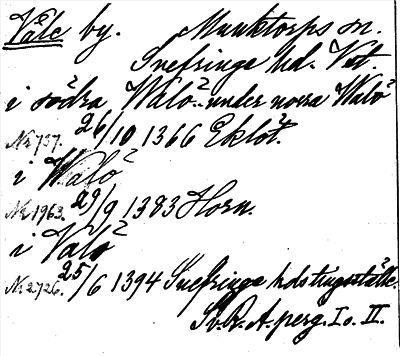 Våle by. Munktorps sn.
Snefringe hd. Vst.
i södra Walö² under norra Walö²
Nr 737. 26/10 1366 Eklöt.
i Walö²
Nr 1963. 29/9 1383 Horn.
i Valö²
Nr 2726. 25/6 1394 Snefringe hds tingsställe.
Sv. R. A. perg. I o. II.